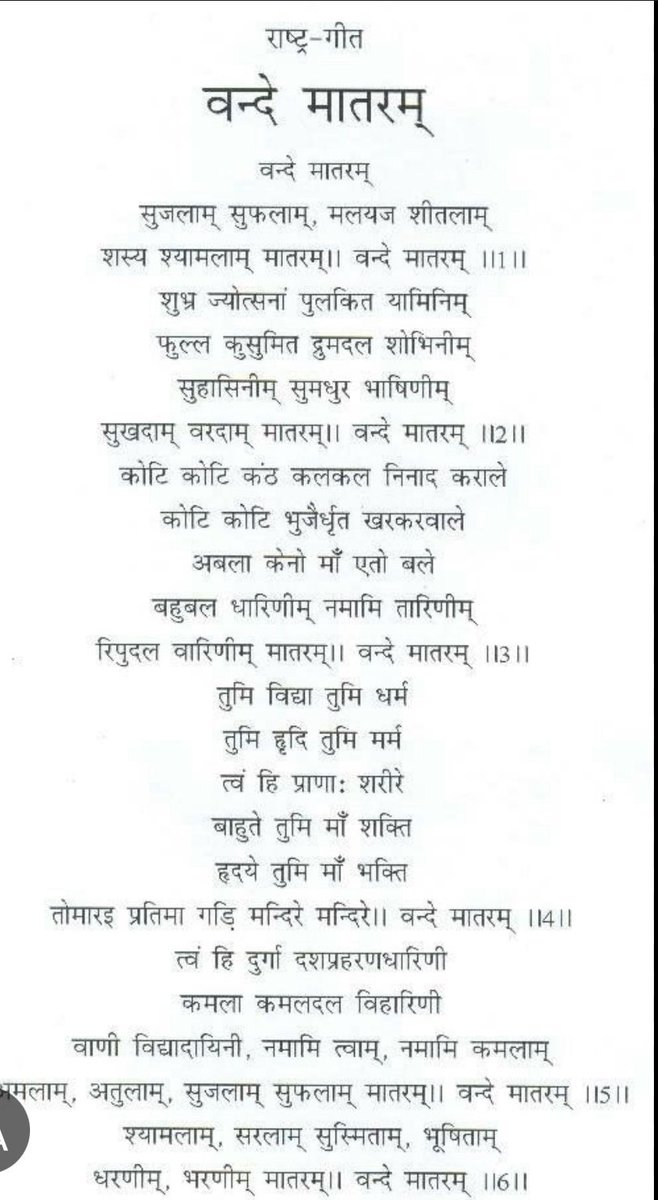 राष्ट्र-गीत
वन्दे मातरम्
वन्दे मातरम्
सुजलाम् सुफलाम्, मलयज शीतलाम्
शस्य श्यामलाम् मातरम्।। वन्दे मातरम् ।।1।।
शुभ्र ज्योत्सनां पुलकित यामिनिम्
फुल्ल कुसुमित द्रुमदल शोभिनीम्
सुहासिनीम् सुमधुर भाषिणीम्
सुखदाम् वरदाम् मातरम्।। वन्दे मातरम् ।।2।।
कोटि कोटि कंठ कलकल निनाद कराले
कोटि कोटि भुजैर्धृत खरकरवाले
अबला केनो माँ एतो बले
बहुबल धारिणीम् नमामि तारिणीम्
रिपुदल वारिणीम् मातरम्।। वन्दे मातरम् ।।3।।
तुमि विद्या तुमि धर्म
तुमि हृदि तुमि मर्म
त्वं हि प्राणाः शरीरे
बाहुते तुमि माँ शक्ति
हृदये तुमि माँ भक्ति
तोमारइ प्रतिमा गड़ि मन्दिरे मन्दिरे।। वन्दे मातरम् ।।4।।
त्वं हि दुर्गा दशप्रहरणधारिणी
कमला कमलदल विहारिणी
वाणी विद्यादायिनी, नमामि त्वाम्, नमामि कमलाम्
अमलाम्, अतुलाम्, सुजलाम् सुफलाम् मातरम्।। वन्दे मातरम् ।।5।।
श्यामलाम्, सरलाम् सुस्मिताम्, भूषिताम्
धरणीम्, भरणीम् मातरम्।। वन्दे मातरम् ।।6।।